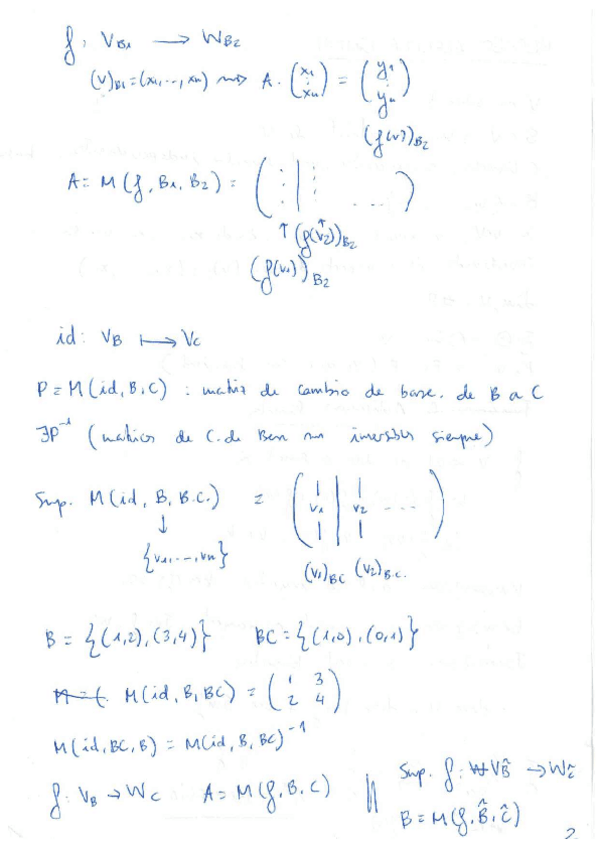 f: V_B1 ⟶ W_B2
(v)_B1 = (x1, ..., xn) ⇝ A · (x1 ⋮ xn) = (y1 ⋮ yn)
(f(v))_B2
A = M(f, B1, B2) = ( ⋮ | ⋮ ... )
↑ (f(v2))_B2
(f(v1))_B2
id: V_B ⟼ V_C
P = M(id, B, C) : matriz de cambio de base. de B a C
∃P^-1 (matrices de C. de Base son inversibles siempre)
Sup. M(id, B, B.C.) = ( v1 | v2 ... )
↓
{v1, ..., vn}
(v1)_BC (v2)_B.C.
B = {(1,2), (3,4)} BC = {(1,0), (0,1)}
M(id, B, BC) = (1 3
2 4)
M(id, BC, B) = M(id, B, BC)^-1
f: V_B → W_C A = M(f, B, C) || Sup. f: V_B̂ → W_Ĉ
B = M(f, B̂, Ĉ)
2